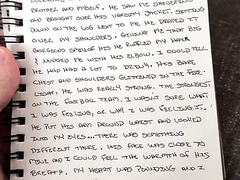 BROTHER AND MYSELF. HE SAW ME SHIVERING
AND BROUGHT OVER HIS VARSITY JACKET. SITTING
DOWN ON THE LOG NEXT TO ME HE DRAPED IT
OVER MY SHOULDERS. GIVING ME THAT BIG
GORGEOUS GRIN OF HIS HE RUBBED MY HAIR
& NUDGED ME WITH HIS ELBOW. I COULD TELL
HE HAD HAD A LOT TO DRINK. HIS BARE
CHEST AND SHOULDERS GLISTENED IN THE FIRE-
LIGHT. HE WAS REALLY STRONG. THE STRONGEST
ON THE FOOTBALL TEAM, I WASN'T SURE WHAT
I WAS FEELING, OR WHY I WAS FEELING IT.
HE PUT HIS ARM AROUND WAIST AND LOOKED
INTO MY EYES... THERE WAS SOMETHING
DIFFERENT THERE. HIS FACE WAS CLOSE TO
MINE AND I COULD FEEL THE WARMTH OF HIS
BREATH. MY HEART WAS POUNDING AND I